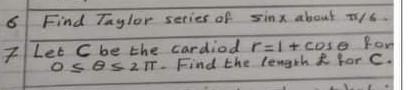 6 Find Taylor series of sinx about π/6.
7 Let C be the cardiod r=1+cosθ for
0≤θ≤2π. Find the length & for C.